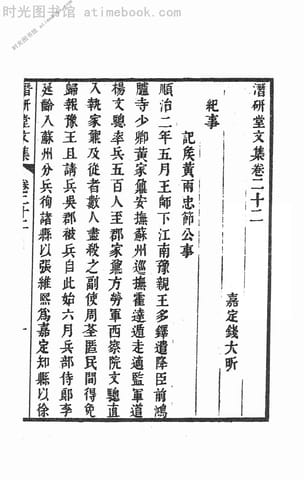 时光图书馆 atimebook.com
潛研堂文集卷二十二
嘉定錢大昕
紀事
記侯黃兩忠節公事
順治二年五月王師下江南豫親王多鐸遣降臣前鴻
臚寺少卿黃家鼐安撫蘇州巡撫霍達遁走適監軍道
楊文驄率兵五百人至郡家鼐方勞軍西察院文驄直
入執家鼐及從者數人盡殺之副使周荃匿民間得免
歸報豫王且請兵吳郡被兵自此始六月兵部侍郎李
延齡入蘇州分兵徇諸縣以張維熙為嘉定知縣以徐
潛研堂文集
卷二十二
一
时光图书馆 atimebook.com